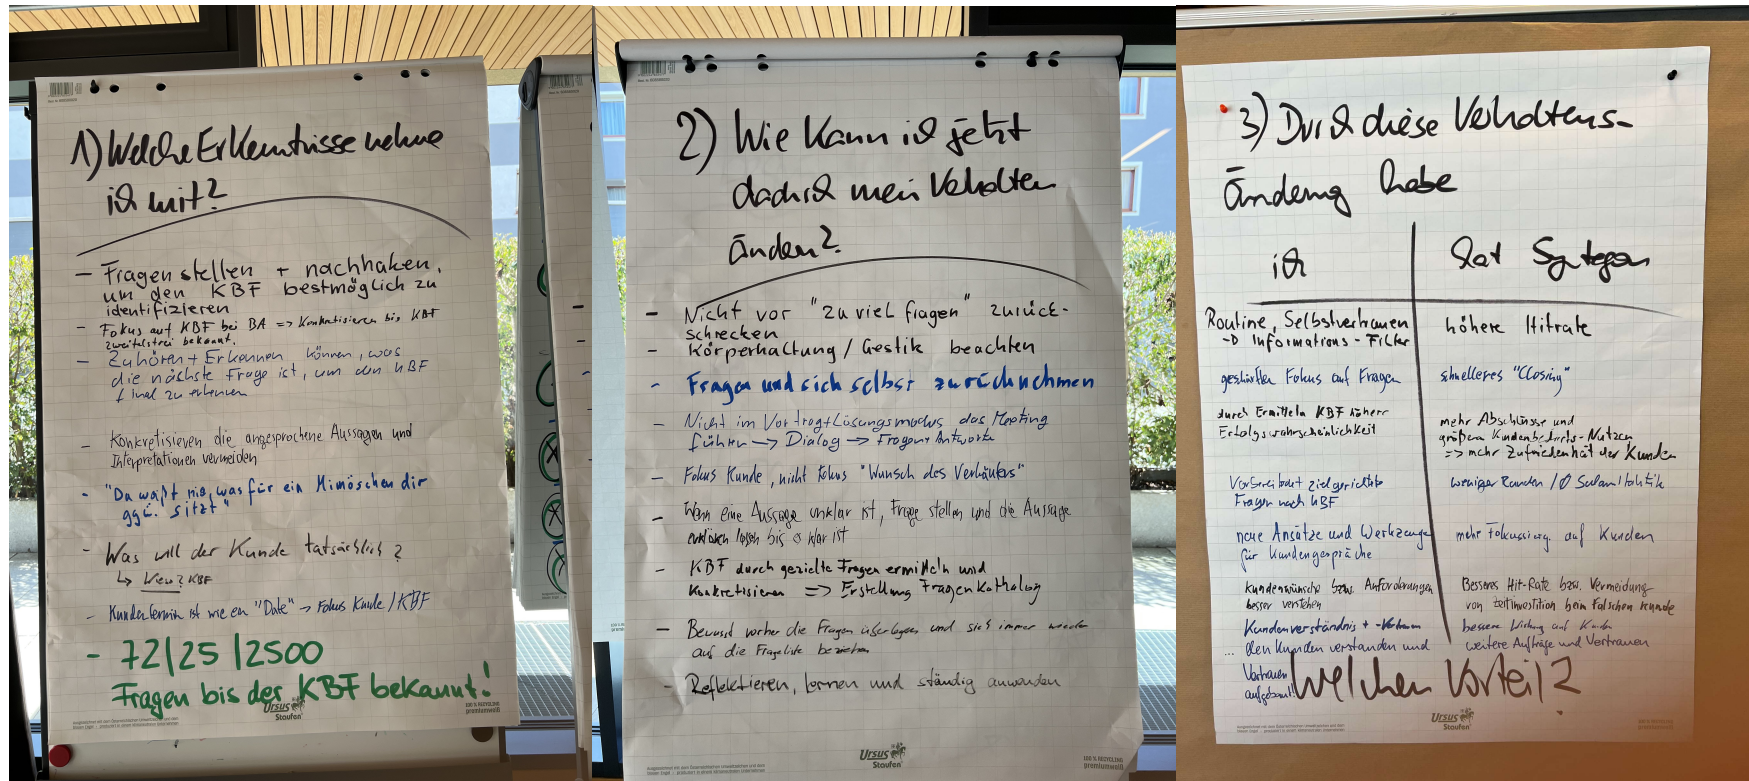 1) Welche Erkenntnisse nehme
ich mit?
- Fragen stellen + nachhaken,
um den KBF bestmöglich zu
identifizieren
- Fokus auf KBF bei BA => Konkretisieren bis KBF
zweifelsfrei bekannt.
- Zuhören + Erkennen können, was
die nächste Frage ist, um den KBF
final zu erkennen
- Konkretisieren die angesprochene Aussagen und
Interpretationen vermeiden
- "Du waßt nie, was für ein Mimöschen dir
ggü. sitzt"
- Was will der Kunde tatsächlich?
↳ KBF
- Kundentermin ist wie ein "Date" → Fokus Kunde / KBF
- 72/25/2500
Fragen bis der KBF bekannt!
Ursus
Staufen
100 % RECYCLING
premiumweiß
2) Wie kann ich jetzt
dadurch mein Verhalten
ändern?
- Nicht vor "zu viel fragen" zurück-
schrecken
- Körperhaltung / Gestik beachten
- Fragen und sich selbst zurücknehmen
- Nicht im Vortrag+Lösungsmodus das Meeting
führen → Dialog → Fragen+Antworten
- Fokus Kunde, nicht Fokus "Wunsch des Verkäufers"
- Wenn eine Aussage unklar ist, Frage stellen und die Aussage
erklären lassen bis es klar ist
- KBF durch gezielte Fragen ermitteln und
konkretisieren => Erstellung Fragenkathalog
- Bewusst vorher die Fragen überlegen und sich immer wieder
auf die Frageliste beziehen
- Reflektieren, lernen und ständig anwenden
Ursus
Staufen
100 % RECYCLING
premiumweiß
3) Durch diese Verhaltens-
änderung habe
ich
hat Syntegon
Routine, Selbstvertrauen
→ Informations-Filter
höhere Hitrate
geschärfter Fokus auf Fragen
schnelleres "Closing"
durch Ermitteln KBF höhere
Erfolgswahrscheinlichkeit
mehr Abschlüsse und
größeren Kundenbedarfs-Nutzen
=> mehr Zufriedenheit der Kunden
Vorbereitet zielgerichtete
Fragen nach KBF
weniger Runden / Ø Salamitaktik
neue Ansätze und Werkzeuge
für Kundengespräche
mehr Fokussierung auf Kunden
Kundenwünsche bzw. Anforderungen
besser verstehen
Besseres Hit-Rate bzw. Vermeidung
von Zeitinvestition beim falschen Kunde
Kundenverständnis +
bessere Wirkung auf Kunden
... den Kunden verstanden und
Vertrauen
aufgebaut!
weitere Aufträge und Vertrauen
Welchen Vorteil?
Ursus
Staufen